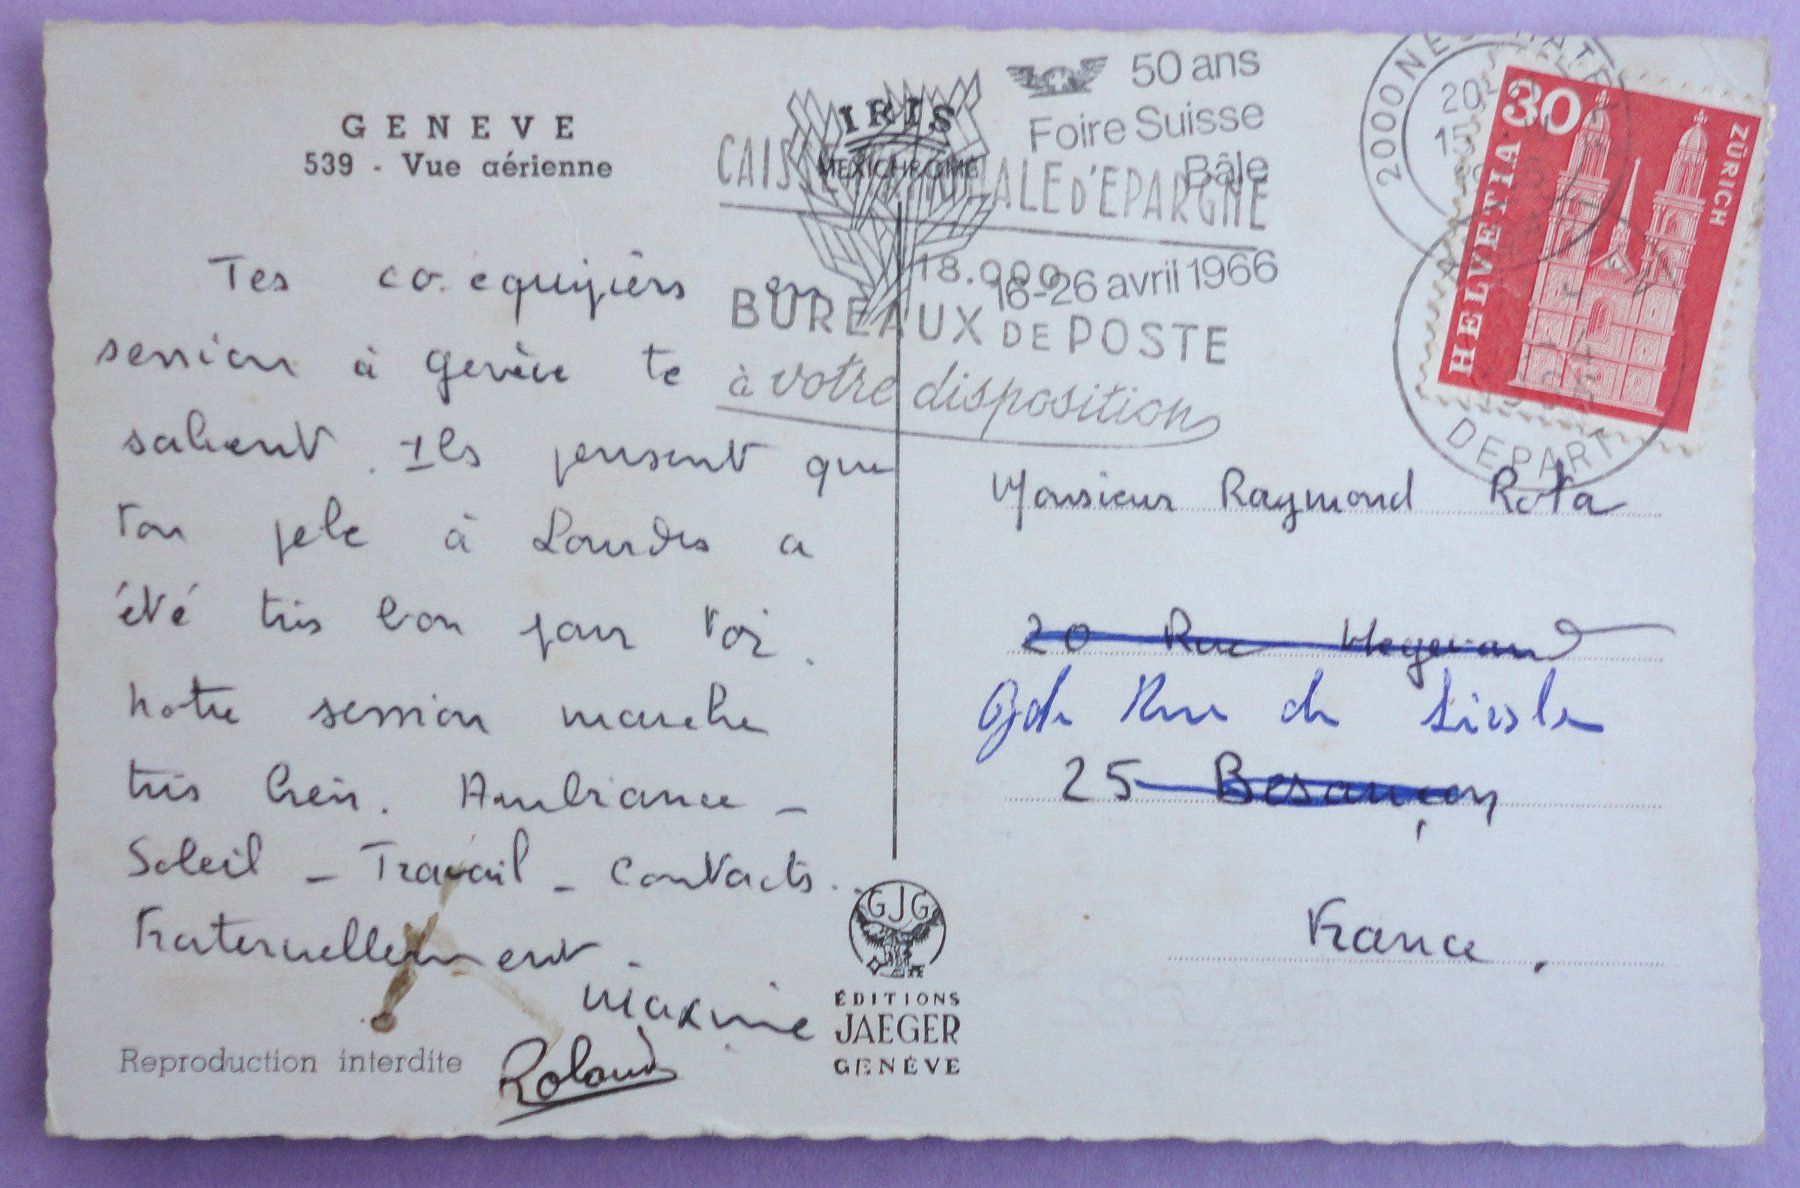 GENEVE
539 - Vue aérienne
IRIS
MEXICHROME
50 ans
Foire Suisse
Bâle
16-26 avril 1966
D'EPARGNE
18.000
BUREAUX DE POSTE
à votre disposition
2000 NEUCHATEL
30
HELVETIA
ZÜRICH
DEPART
Tes co.équipiers en
session à Genève te
saluent. Ils pensent que
ton pelé à Lourdes a
été très bon pour toi.
Notre session marche
très bien. Ambiance -
Soleil - Travail - Contacts..
Fraternellement.
Maxime
Roland
Reproduction interdite
GJG
ÉDITIONS
JAEGER
GENÈVE
Monsieur Raymond Rota
20 Rue
Gde Rue de
25 Besançon
France.